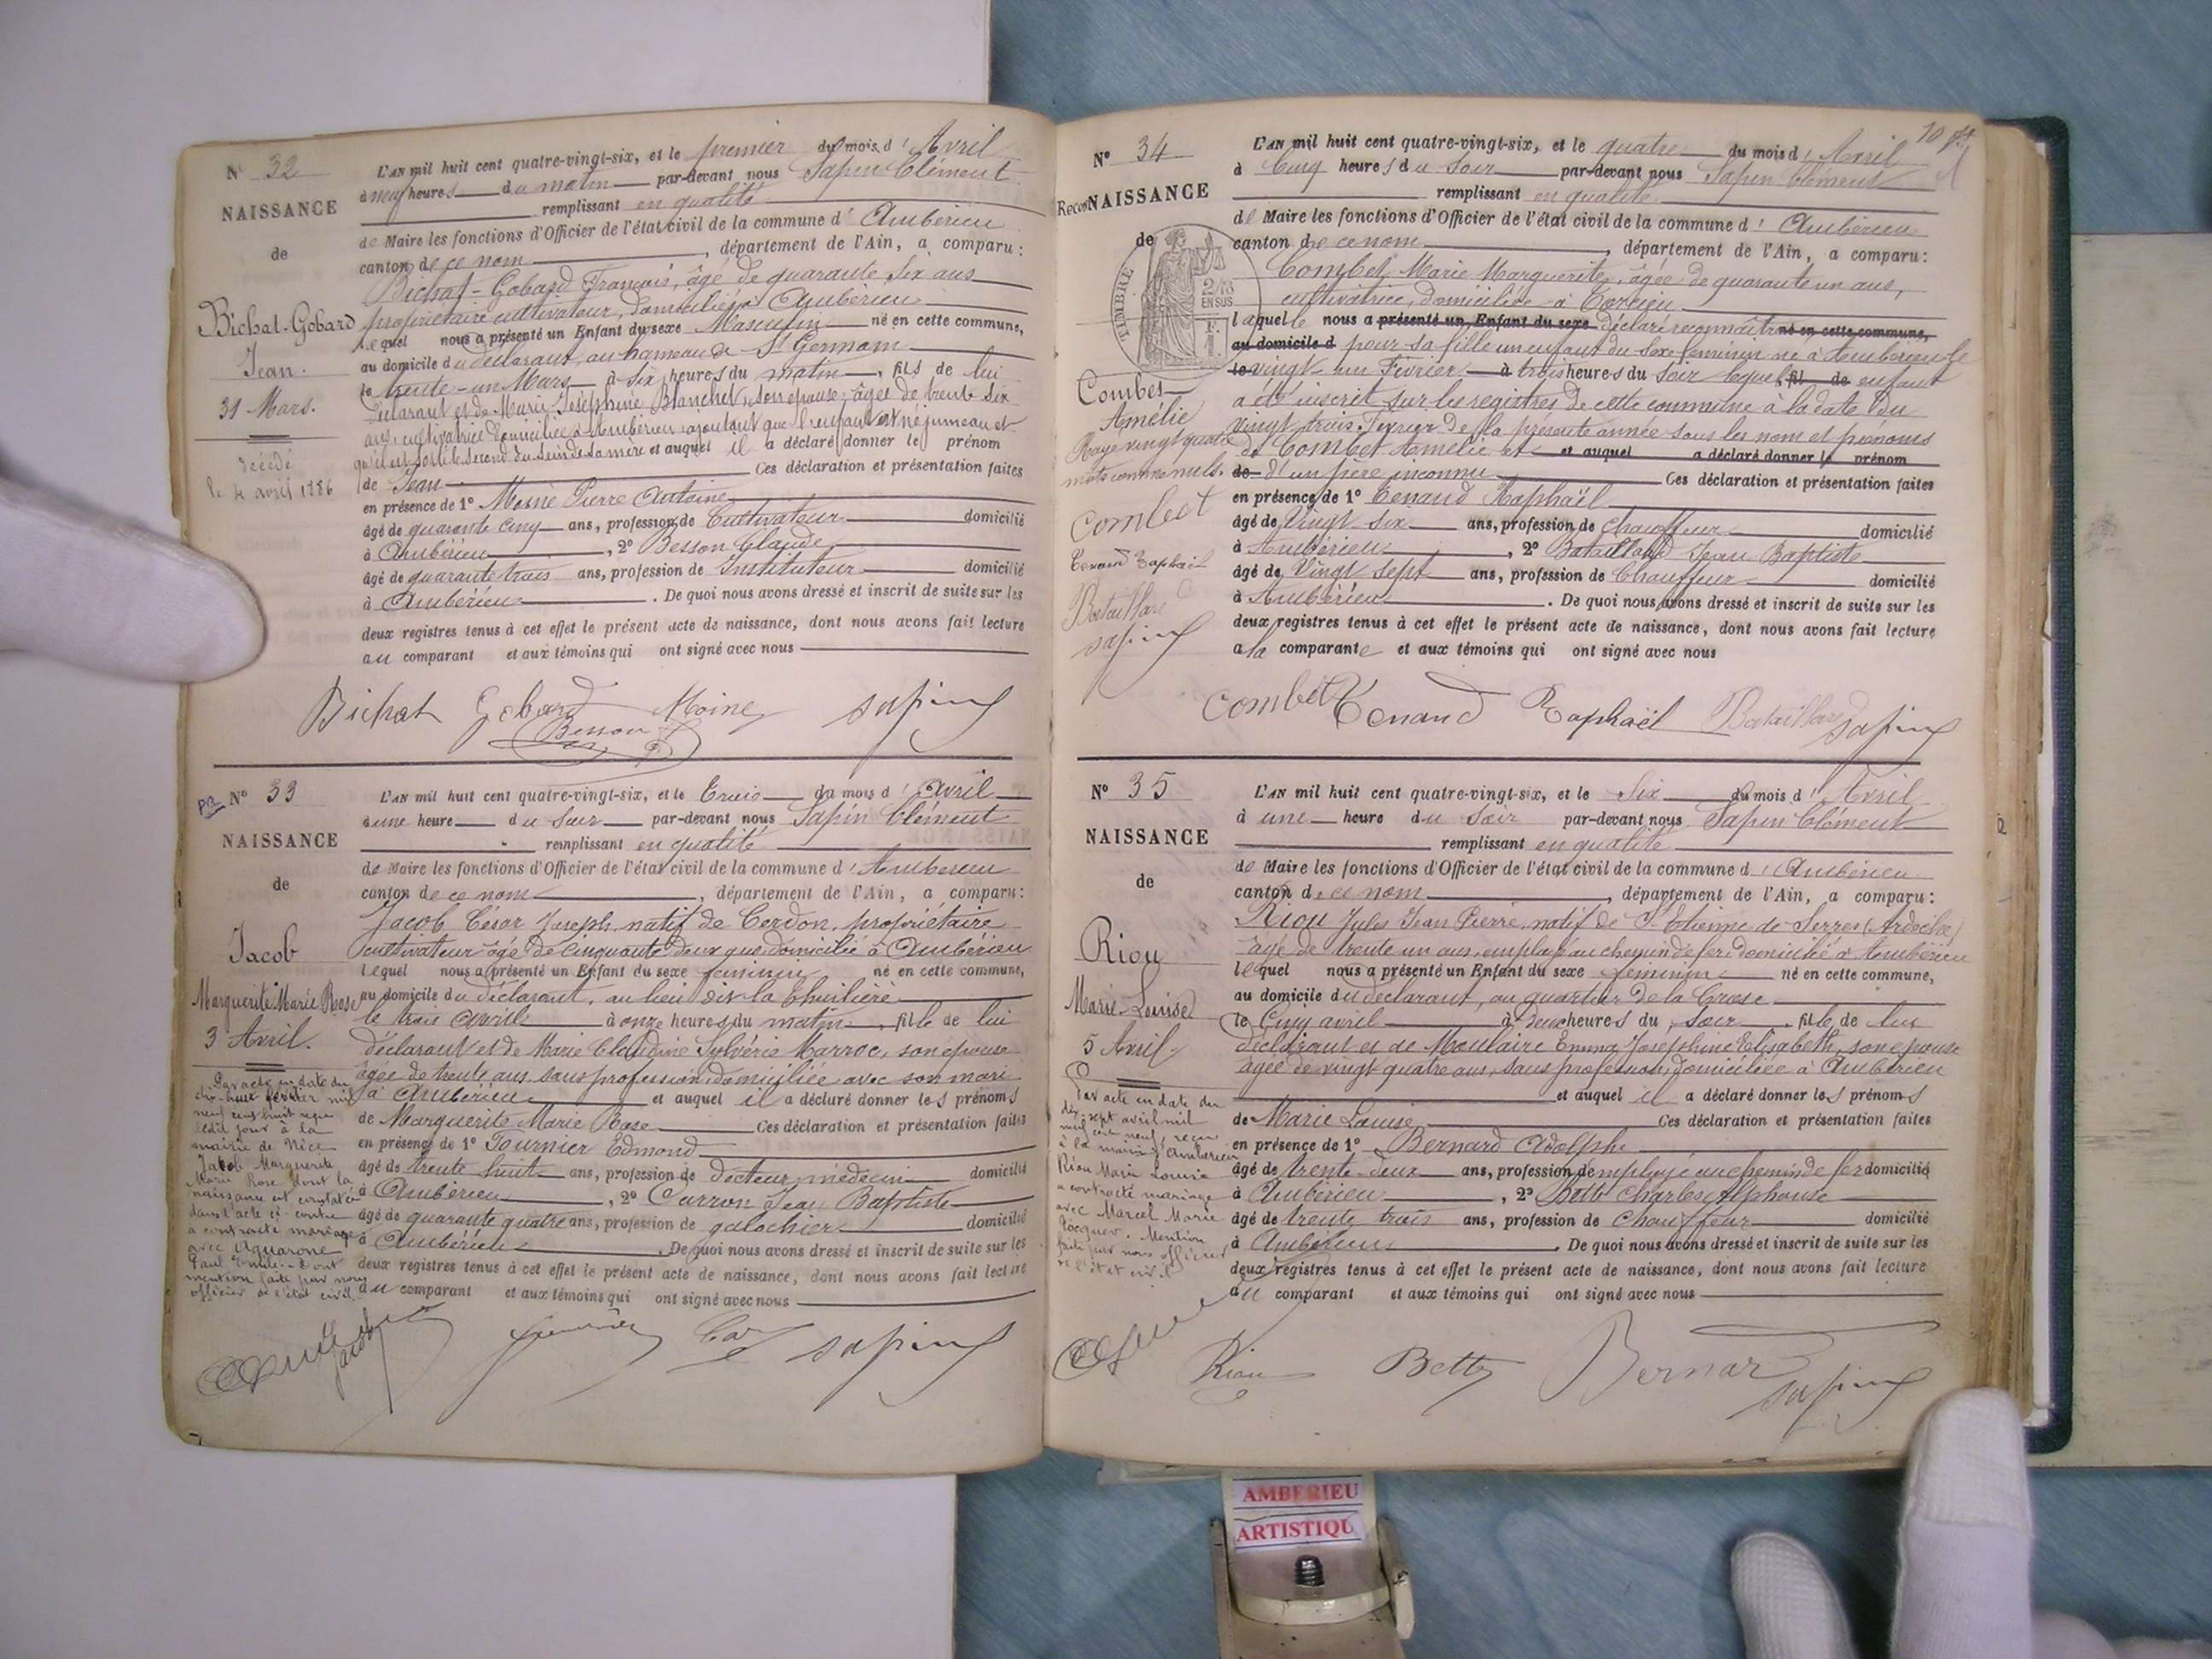 N° 32
NAISSANCE
de
Bichat-Gobard
Jean.
31 Mars.
décédé
le 4 avril 1886
L'AN mil huit cent quatre-vingt-six, et le premier du mois d'Avril
à neuf heures du matin par-devant nous Sapin Clément
remplissant en qualité
de Maire les fonctions d'Officier de l'état civil de la commune d'Ambérieu
canton de ce nom, département de l'Ain, a comparu:
Bichat-Gobard François, âgé de quarante six ans
propriétaire cultivateur, domicilié à Ambérieu
lequel nous a présenté un Enfant du sexe Masculin né en cette commune,
au domicile du déclarant, au hameau de St Germain
le trente-un Mars à six heures du matin, fils de lui
déclarant et de Marie Josephine Blanchet, son épouse, âgée de trente six
ans, cultivatrice domiciliée à Ambérieu ajoutant que l'enfant est né jumeau et
qu'il est sorti le second du sein de sa mère et auquel il a déclaré donner le prénom
de Jean Ces déclaration et présentation faites
en présence de 1° Moine Pierre Antoine
âgé de quarante cinq ans, profession de Cultivateur domicilié
à Ambérieu, 2° Besson Claude
âgé de quarante trois ans, profession de Instituteur domicilié
à Ambérieu. De quoi nous avons dressé et inscrit de suite sur les
deux registres tenus à cet effet le présent acte de naissance, dont nous avons fait lecture
au comparant et aux témoins qui ont signé avec nous
Bichat Gobard Moine Sapin
Besson
N° 33
NAISSANCE
de
Jacob
Marguerite Marie Rose
3 Avril.
Par acte en date du
dix-huit février mil
neuf cent huit reçu
ledit jour à la
mairie de Nice
Jacob Marguerite
Marie Rose dont la
naissance est constatée
dans l'acte ci-contre
a contracté mariage
avec Aquarone
Paul Emile. Dont
mention faite par nous
officier de l'état civil
L'AN mil huit cent quatre-vingt-six, et le Trois du mois d'Avril
à une heure du Soir par-devant nous Sapin Clément
remplissant en qualité
de Maire les fonctions d'Officier de l'état civil de la commune d'Ambérieu
canton de ce nom, département de l'Ain, a comparu:
Jacob César Joseph, natif de Cerdon, propriétaire
cultivateur âgé de cinquante deux ans domicilié à Ambérieu
lequel nous a présenté un Enfant du sexe féminin né en cette commune,
au domicile du déclarant, au lieu dit la Thuilière
le trois Avril à onze heures du matin, fille de lui
déclarant et de Marie Claudine Sylvérie Marroc, son épouse
âgée de trente ans, sans profession, domiciliée avec son mari
à Ambérieu et auquel il a déclaré donner les prénoms
de Marguerite Marie Rose Ces déclaration et présentation faites
en présence de 1° Tournier Edmond
âgé de trente huit ans, profession de docteur médecin domicilié
à Ambérieu, 2° Carron Jean Baptiste
âgé de quarante quatre ans, profession de galochier domicilié
à Ambérieu. De quoi nous avons dressé et inscrit de suite sur les
deux registres tenus à cet effet le présent acte de naissance, dont nous avons fait lecture
au comparant et aux témoins qui ont signé avec nous
Jacob Sapin
10
N° 34
ReconNAISSANCE
de
TIMBRE
2/10
EN SUS
F.
1
Combet
Amélie
Rayé vingt quatre
mots comme nuls.
Combet
Tenand Raphaël
Bataillard
Sapin
L'AN mil huit cent quatre-vingt-six, et le quatre du mois d'Avril
à Cinq heures du Soir par-devant nous Sapin Clément
remplissant en qualité
de Maire les fonctions d'Officier de l'état civil de la commune d'Ambérieu
canton de ce nom, département de l'Ain, a comparu:
Combet Marie Marguerite, âgée de quarante un ans,
cultivatrice, domiciliée à
laquelle nous a présenté un Enfant du sexe déclaré reconnaître né en cette commune,
au domicile d pour sa fille un enfant du sexe féminin né à Ambérieu le
le vingt-un Février à trois heures du Soir lequel fil de enfant
a été inscrit sur les registres de cette commune à la date du
vingt trois Février de la présente année sous les nom et prénoms
de Combet Amélie et et auquel a déclaré donner le prénom
de d'un père inconnu Ces déclaration et présentation faites
en présence de 1° Tenand Raphaël
âgé de Vingt six ans, profession de Chauffeur domicilié
à Ambérieu, 2° Bataillard Jean Baptiste
âgé de Vingt sept ans, profession de Chauffeur domicilié
à Ambérieu. De quoi nous avons dressé et inscrit de suite sur les
deux registres tenus à cet effet le présent acte de naissance, dont nous avons fait lecture
à la comparante et aux témoins qui ont signé avec nous
Combet Tenand Raphaël Bataillard Sapin
N° 35
NAISSANCE
de
Riou
Marie-Louise
5 Avril.
Par acte en date du
dix sept avril mil
neuf cent neuf, reçu
à la mairie d'Ambérieu
Riou Marie Louise
a contracté mariage
avec Marcel Marie
Mention
faite par nous officier
de l'état civil
L'AN mil huit cent quatre-vingt-six, et le Six du mois d'Avril
à une heure du Soir par-devant nous Sapin Clément
remplissant en qualité
de Maire les fonctions d'Officier de l'état civil de la commune d'Ambérieu
canton de ce nom, département de l'Ain, a comparu:
Riou Jules Jean Pierre, natif de St Etienne de Serres (Ardèche)
âgé de trente un ans, employé au chemin de fer, domicilié à Ambérieu
lequel nous a présenté un Enfant du sexe féminin né en cette commune,
au domicile du déclarant, au quartier de la Grose
le Cinq avril à deux heures du soir, fille de lui
déclarant et de Moulaire Emma Joséphine Elisabeth, son épouse
âgée de vingt quatre ans, sans profession, domiciliée à Ambérieu
et auquel il a déclaré donner les prénoms
de Marie Louise Ces déclaration et présentation faites
en présence de 1° Bernard Adolphe
âgé de trente-deux ans, profession de employé au chemin de fer domicilié
à Ambérieu, 2° Betty Charles Alphonse
âgé de trente trois ans, profession de chauffeur domicilié
à Ambérieu. De quoi nous avons dressé et inscrit de suite sur les
deux registres tenus à cet effet le présent acte de naissance, dont nous avons fait lecture
au comparant et aux témoins qui ont signé avec nous
Riou Betty Bernard
Sapin
AMBERIEU
ARTISTIQU